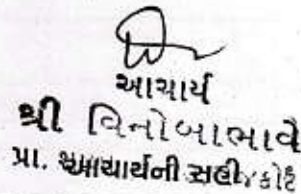 આચાર્ય
શ્રી વિનોબાભાવે
પ્રા. આચાર્યની સહી